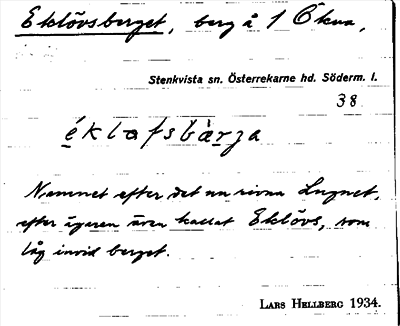 Eklövsberget, berg å 1 Ökna,
Stenkvista sn. Österrekarne hd. Söderm. l.
38
é̱klafsbàr̲ʒa
Namnet efter det nu rivna Lugnet,
efter ägaren även kallat Eklövs, som
låg invid berget.
LARS HELLBERG 1934.